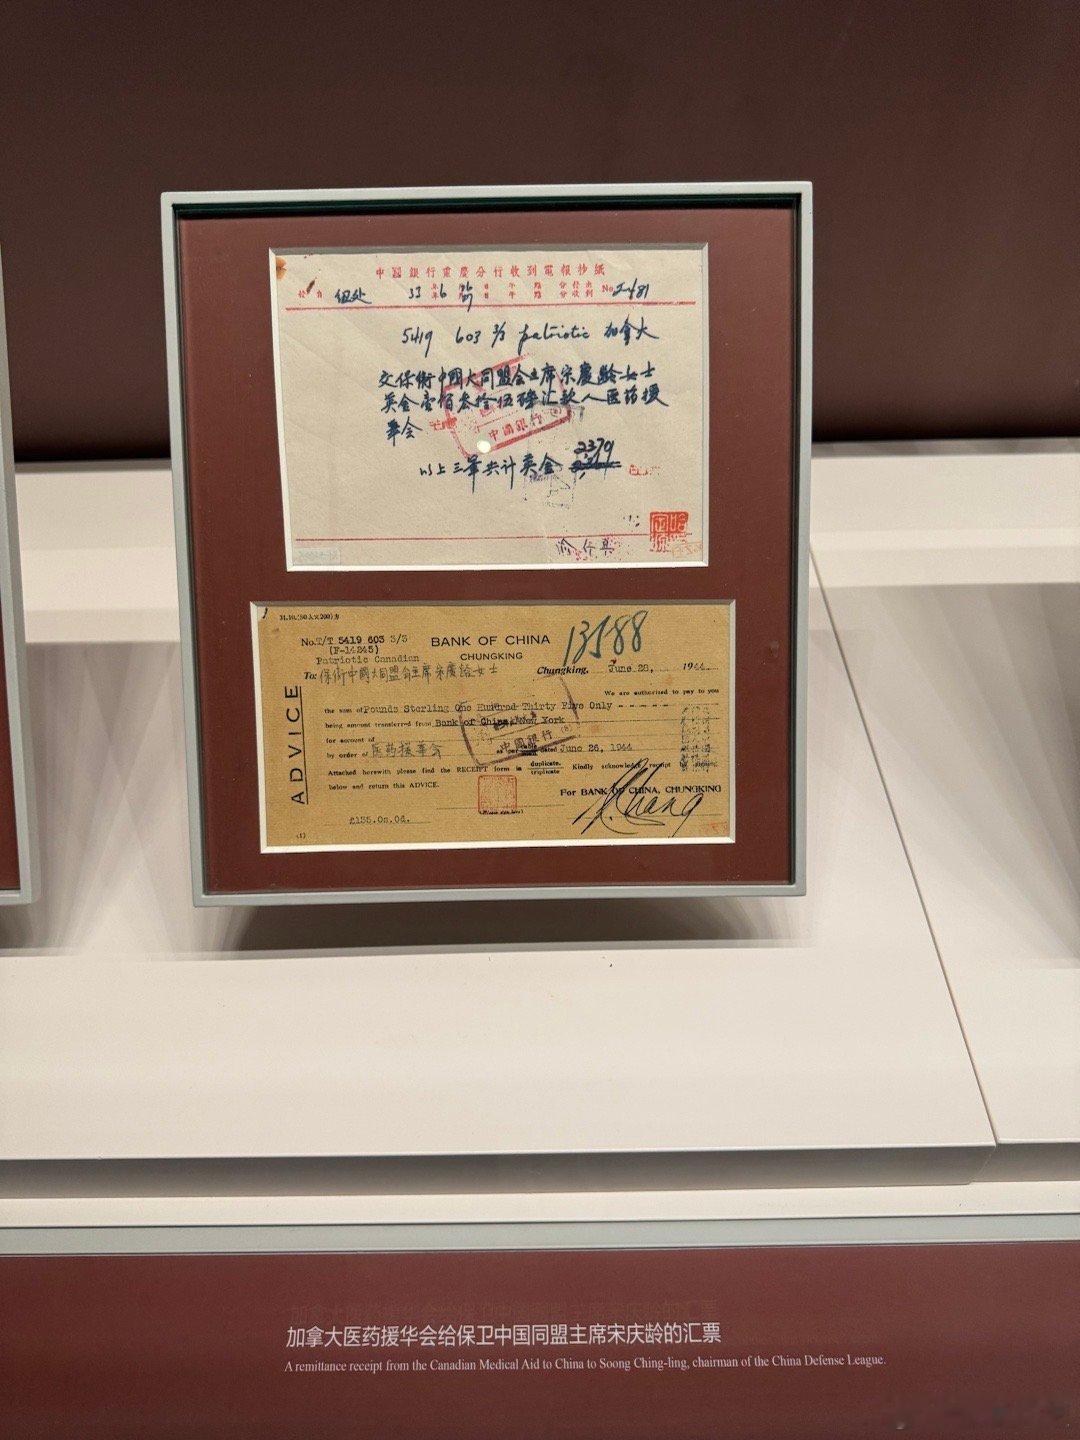 中國銀行重慶分行收到電報抄紙
紐处 33 6 No. 2481
5419 603 3/3 patriotic 加拿大
交保衛中國大同盟会主席宋慶齡女士
英金壹佰叁拾伍磅汇款人医药援
華会
中國銀行
以上三筆共计英金 2379
No.T/T 5419 603 3/3
(F-14245)
Patriotic Canadian
BANK OF CHINA
CHUNGKING
13588
Chungking, June 28, 1944
To: 保衛中國大同盟会主席宋慶齡女士
We are authorised to pay to you
the sum of Pounds Sterling One Hundred Thirty Five Only
being amount transferred from Bank of China, New York
for account of
by order of 医药援華会 as per dated June 26, 1944
中國銀行
Attached herewith please find the RECEIPT form in duplicate. triplicate Kindly acknowledge receipt
below and return this ADVICE.
For BANK OF CHINA, CHUNGKING
Chang
£135.0s.0d.
(1)
ADVICE
加拿大医药援华会给保卫中国同盟主席宋庆龄的汇票
A remittance receipt from the Canadian Medical Aid to China to Soong Ching-ling, chairman of the China Defense League.